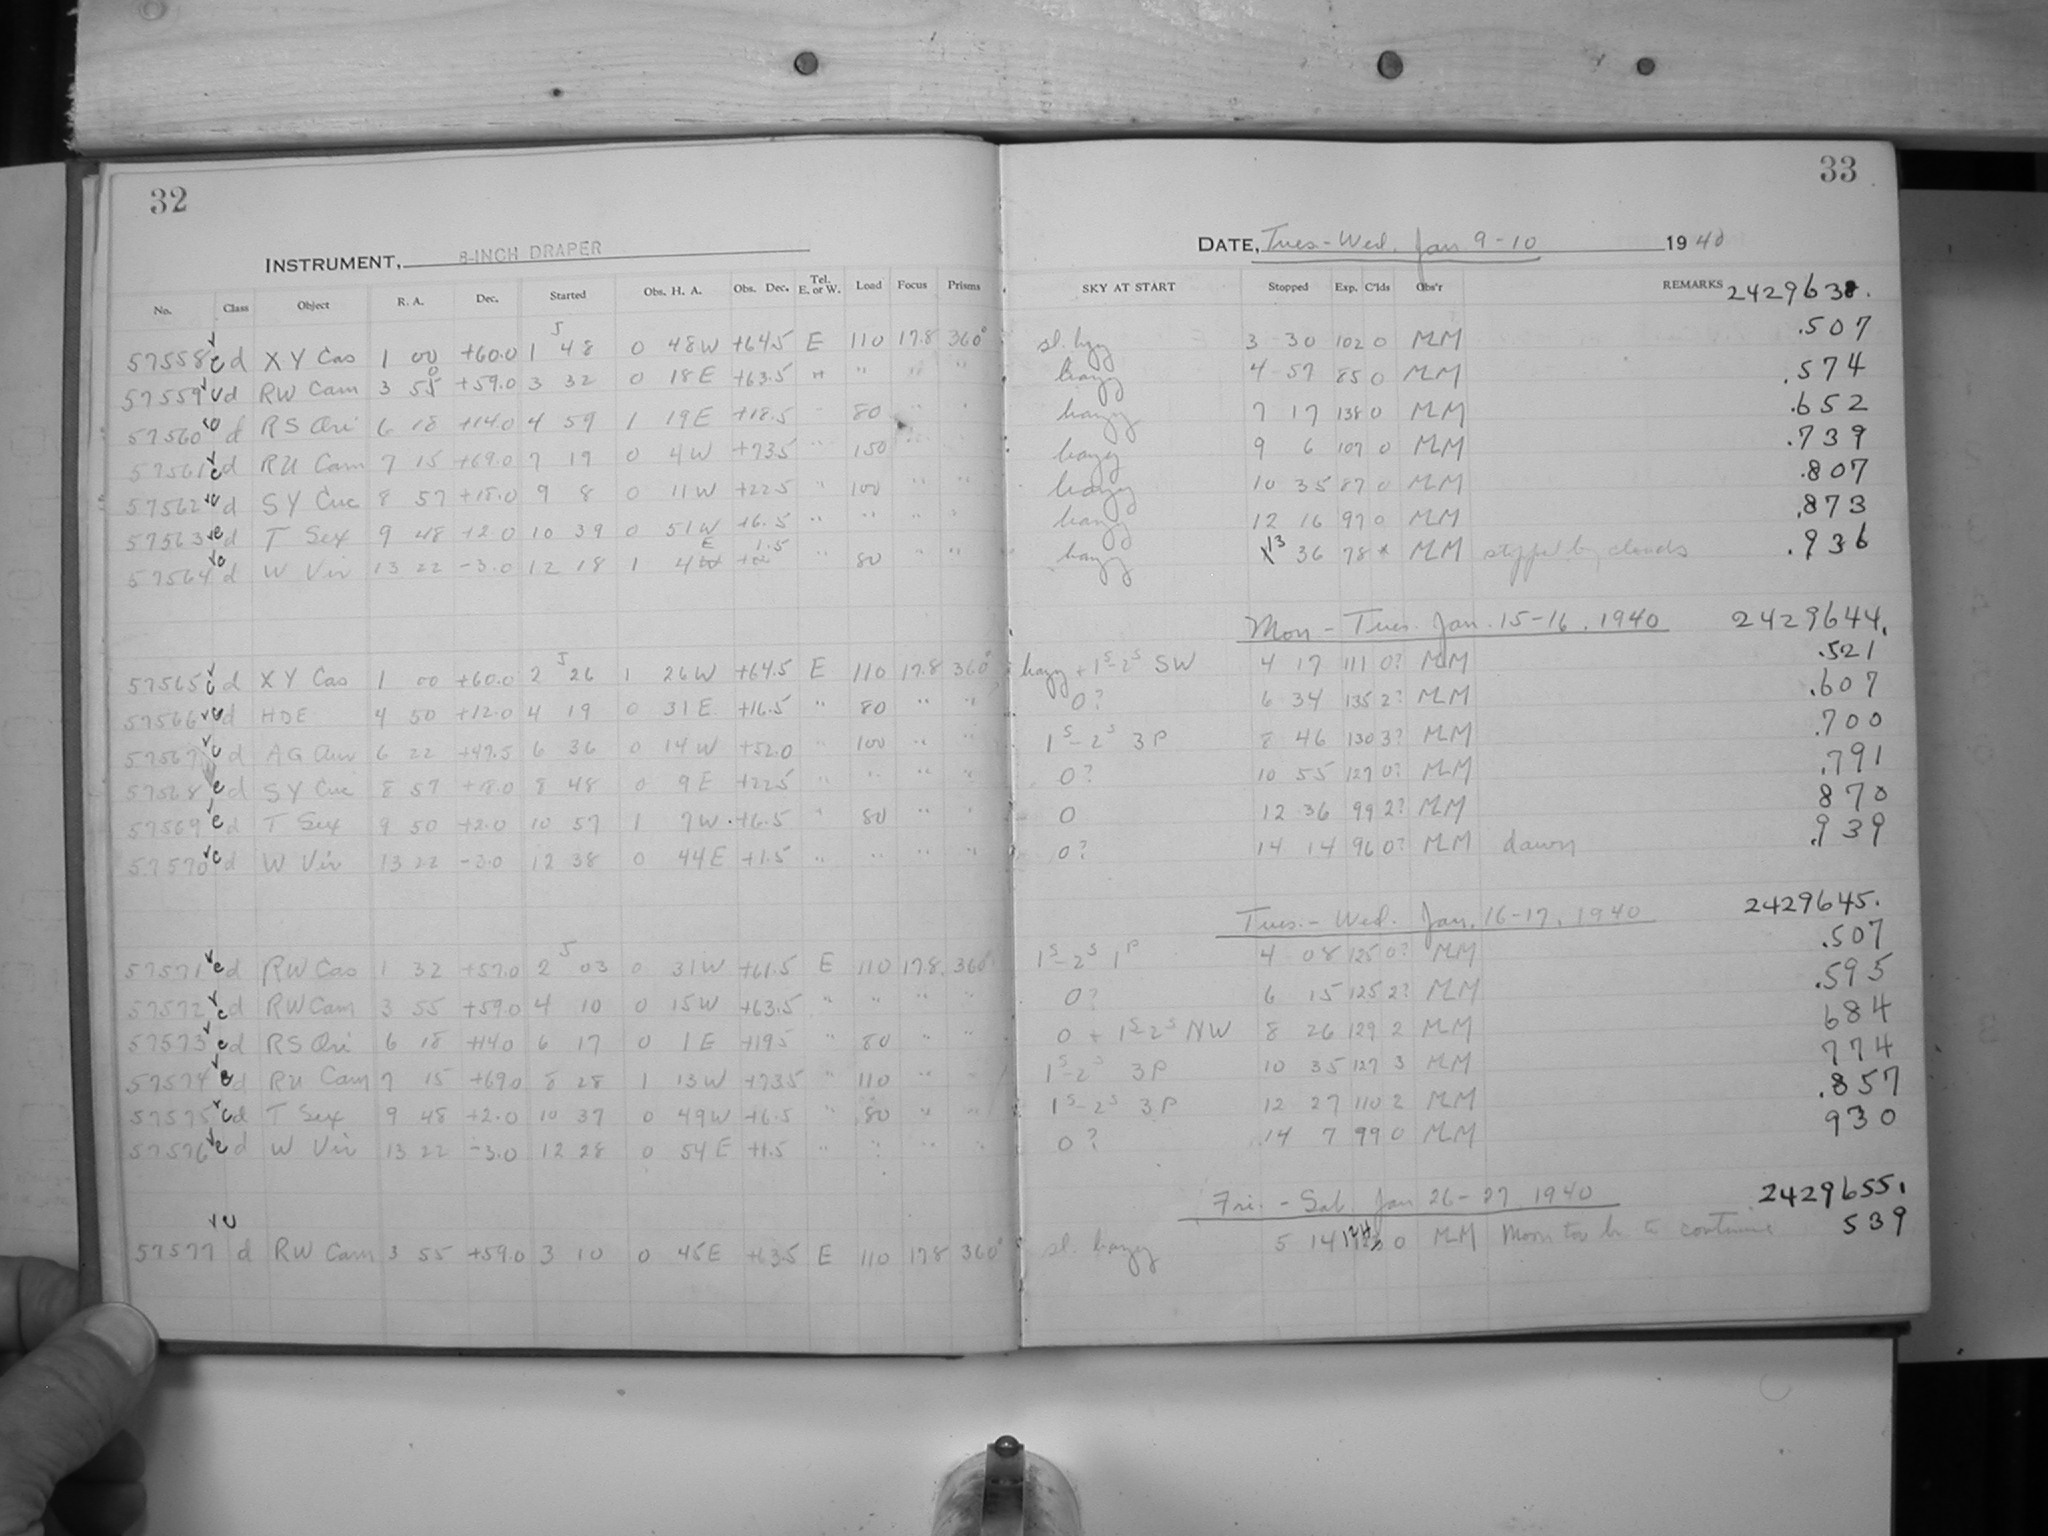 32
33
INSTRUMENT, 8-INCH DRAPER
DATE, Tues-Wed. Jan 9-10 1940
No. Class Object R. A. Dec. Started Obs. H. A. Obs. Dec. Tel. E. or W. Load Focus Prisms SKY AT START Stopped Exp. C'lds Obs'r REMARKS 2429638.
57558 c d XY Cas 1 00 +60.0 1 48 0 48W +64.5 E 110 17.8 360° sl. hzy 3 30 102 0 MM .507
57559 c d RW Cam 3 55 +59.0 3 32 0 18E +63.5 " " " " hazy 4 57 85 0 MM .574
57560 c d RS Ori 6 18 +14.0 4 59 1 19E +18.5 " 80 " " hazy 7 17 138 0 MM .652
57561 c d RU Cam 7 15 +69.0 7 19 0 4W +73.5 " 150 " " hazy 9 6 107 0 MM .739
57562 c d SY Cnc 8 57 +18.0 9 8 0 11W +22.5 " 100 " " hazy 10 35 87 0 MM .807
57563 c d T Sex 9 48 +2.0 10 39 0 51W +6.5 " " " " hazy 12 16 97 0 MM .873
57564 c d W Vir 13 22 -3.0 12 18 1 4E 1.5 " 80 " " hazy 13 36 78 * MM stopped by clouds .936
Mon - Tues. Jan. 15-16, 1940 2429644.
57565 c d XY Cas 1 00 +60.0 2 26 1 26W +64.5 E 110 17.8 360° hazy + 1S-2S SW 4 17 111 0? MM .521
57566 c d HDE 4 50 +12.0 4 19 0 31E +16.5 " 80 " " 0? 6 34 135 2? MM .607
57567 c d AG Aur 6 22 +47.5 6 36 0 14W +52.0 " 100 " " 1S-2S 3P 8 46 130 3? MM .700
57568 c d SY Cnc 8 57 +18.0 8 48 0 9E +22.5 " " " " 0? 10 55 127 0? MM .791
57569 c d T Sex 9 50 +2.0 10 57 1 7W +6.5 " 80 " " 0 12 36 99 2? MM 870
57570 c d W Vir 13 22 -3.0 12 38 0 44E +1.5 " " " " 0? 14 14 96 0? MM dawn .939
Tues. - Wed. Jan. 16-17, 1940 2429645.
57571 c d RW Cas 1 32 +57.0 2 03 0 31W +61.5 E 110 17.8 360° 1S-2S 1P 4 08 125 0? MM .507
57572 c d RW Cam 3 55 +59.0 4 10 0 15W +63.5 " " " " 0? 6 15 125 2? MM .595
57573 c d RS Ori 6 18 +14.0 6 17 0 1E +19.5 " 80 " " 0 + 1S-2S NW 8 26 129 2 MM 684
57574 c d RU Cam 7 15 +69.0 8 28 1 13W +73.5 " 110 " " 1S-2S 3P 10 35 127 3 MM 774
57575 c d T Sex 9 48 +2.0 10 37 0 49W +6.5 " 80 " " 1S-2S 3P 12 27 110 2 MM .857
57576 c d W Vir 13 22 -3.0 12 28 0 54E +1.5 " " " " 0? 14 7 99 0 MM 930
Fri. - Sat. Jan 26-27, 1940 2429655.
57577 c d RW Cam 3 55 +59.0 3 10 0 45E +63.5 E 110 17.8 360° sl. hazy 5 14 124 0 MM Moon too br. to continue 539